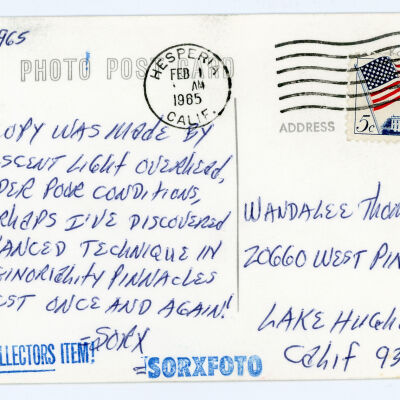 1965
PHOTO POST CARD
HESPERIA
FEB 1
AM
1965
CALIF.
5c
ADDRESS
COPY WAS MADE BY
ESCENT LIGHT OVERHEAD,
DER POOR CONDITIONS,
RHAPS I'VE DISCOVERED
ANCED TECHNIQUE IN
PINNACLES
ST ONCE AND AGAIN!
-SORX
LLECTORS ITEM!
=SORXFOTO
WANDALEE Thom
20660 WEST PIN
LAKE HUGH
CALIF 93